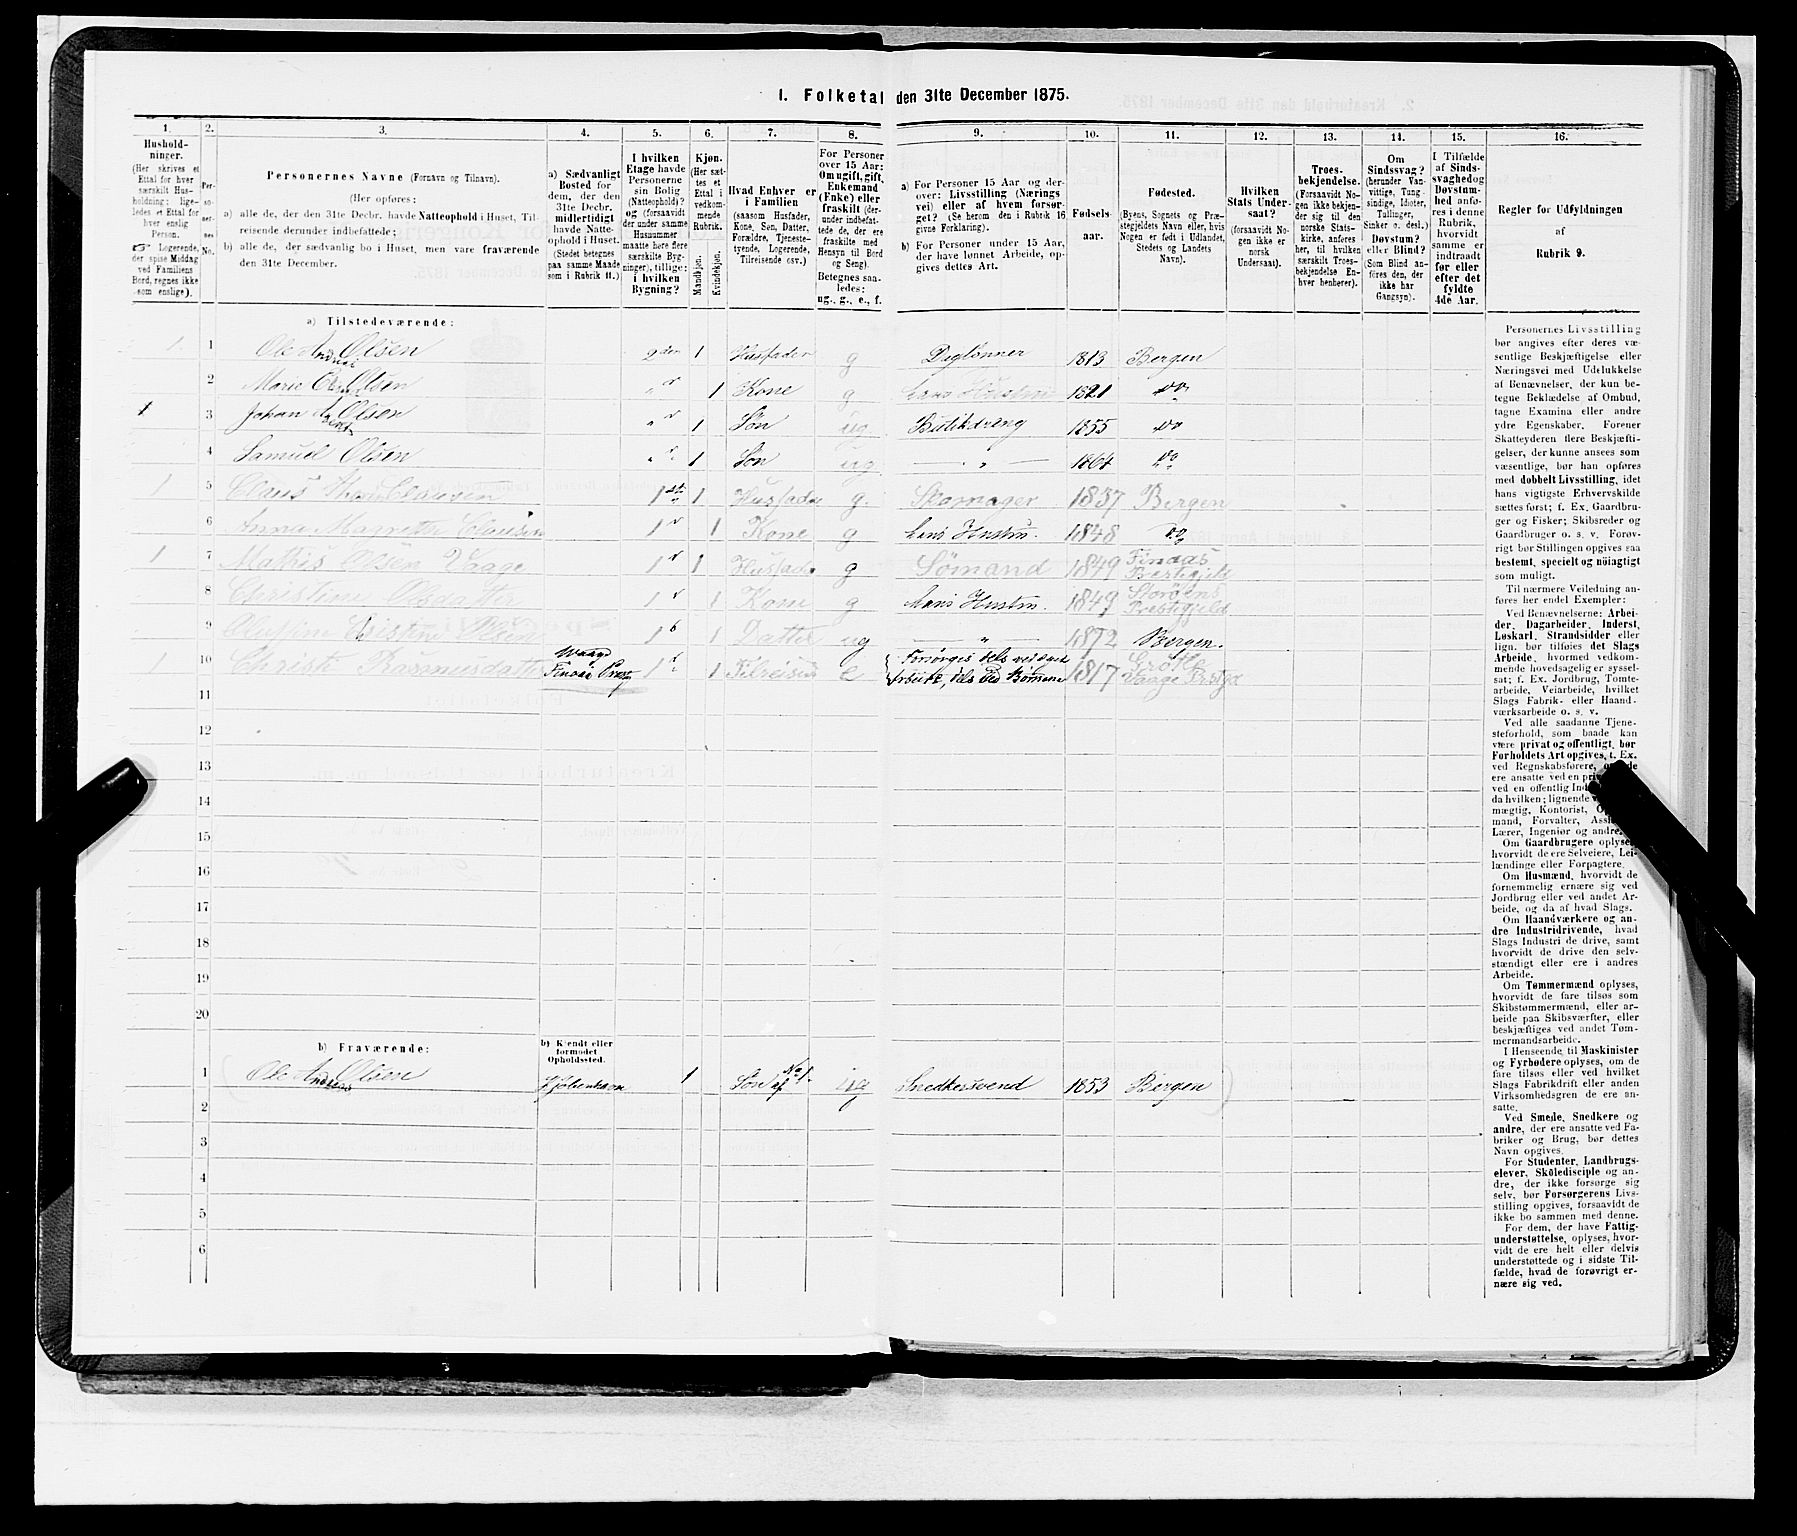 1. Folketal den 31te December 1875.
1. 2. 3. 4. 5. 6. 7. 8. 9. 10. 11. 12. 13. 14. 15. 16.
Hushold-
ninger.
(Her skrives et
Ettal for hver
særskilt Hus-
holdning; lige-
ledes et Ettal for
hver enslig
Person.
☞ Logerende,
der spise Middag
ved Familiens
Bord, regnes ikke
som enslige).
Per-
so-
ner-
nes
No.
Personernes Navne (Fornavn og Tilnavn).
(Her opføres:
a) alle de, der den 31te Decbr. havde Natteophold i Huset, Til-
reisende derunder indbefattede;
b) alle de, der sædvanlig bo i Huset, men vare fraværende
den 31te December.
a) Sædvanligt
Bosted for
dem, der den
31te Decbr.
midlertidigt
havde Natte-
ophold i Huset.
(Stedet betegnes
paa samme Maade
som i Rubrik 11.)
I hvilken
Etage havde
Personerne
sin Bolig
(Natteophold)?
og (forsaavidt
der under samme
Husnummer
maatte høre flere
særskilte Byg-
ninger), tillige:
i hvilken
Bygning?
Kjøn.
(Her sæt-
tes et
Ettal i
vedkom-
mende
Rubrik.)
Mandkjøn.
Kvindekjøn.
Hvad Enhver er
i Familien
(saasom Husfader,
Kone, Søn, Datter,
Forældre, Tjeneste-
tyende, Logerende,
Tilreisende csv.)
For Personer
over 15 Aar:
Om ugift, gift,
Enkemand
(Enke) eller
fraskilt (der-
under indbefat-
tede de, der ere
fraskilte med
Hensyn til Bord
og Seng).
Betegnes saa-
ledes:
ug., g., e., f.
a) For Personer 15 Aar og der-
over: Livsstilling (Nærings-
vei) eller af hvem forsør-
get? (Se herom den i Rubrik 16
givne Forklaring).
b) For Personer under 15 Aar,
der have lønnet Arbeide, op-
gives dettes Art.
Fødsels-
aar.
Fødested.
(Byens, Sognets og Præ-
stegjeldets Navn eller, hvis
Nogen er født i Udlandet,
Stedets og Landets
Navn).
Hvilken
Stats Under-
saat?
(forsaavidt No-
gen ikke er
norsk
Undersaat).
Troes-
bekjendelse.
(Forsaavidt No-
gen ikke bekjen-
der sig til den
norske Stats-
kirke, anføres
her, til hvilken
særskilt Troes-
bekjendelse En-
hver henhører).
Om
Sindssvag?
(herunder Van-
vittige, Tung-
sindige, Idioter,
Tullinger,
Sinker o. desl.)
Døvstum?
eller Blind?
(Som Blind an-
føres den, der
ikke har
Gangsyn).
I Tilfælde
af Sinds-
svaghed og
Døvstum-
hed anfø-
res i denne
Rubrik,
hvorvidt
samme er
indtraadt
før eller
efter det
fyldte
4de Aar.
Regler for Udfyldningen
af
Rubrik 9.
a) Tilstedeværende:
1 1 Ole Andreas Olsen 2den 1 Husfader g Døglønner 1813 Bergen
2 Marie Olsen " 1 Kone g Hans Hustru 1821 do
1 3 Johan Olsen " 1 Søn ug Butikdreng 1855 do
4 Samuel Olsen " 1 Søn ug — " — 1864 do
1 5 Claus Clausen 1ste 1 Husfader g. Skomager 1837 Bergen
6 Anna Magrethe Clausen 1 1 Kone g hans Hustru. 1848 do
1 7 Mathis Olsen Vaage 1 1 Husfader g Sømand 1849 Finaas Prestegjeld
8 Christine Olsdatter 1 1 Kone g Hans Hustru. 1849 Storøens Prestegjeld
9 Cristine Olsen 1 1 Datter ug — " — 1872 Bergen.
1 10 Christi Rasmusdatter Waage Finaas Præstg 1 1 Tilreisend e Forsørges dels ved eget Arbeide, dels ved Børnene 1817 Vaage Prstgd
11
12
13
14
15
16
17
18
19
20
b) Fraværende:
b) Kjendt eller
formodet
Opholdssted.
1 Ole Andreas Olsen Kjøbenhavn 1 Søn af No 1. ug Snedkersvend 1853 Bergen
2
3
4
5
6
Personernes Livsstilling
bør angives efter deres væ-
sentlige Beskjæftigelse eller
Næringsvei med Udelukkelse
af Benævnelser, der kun be-
tegne Beklædelse af Ombud,
tagne Examina eller andre
ydre Egenskaber. Forener
Skatteyderen flere Beskjæfti-
gelser, der kunne ansees som
væsentlige, bør han opføres
med dobbelt Livsstilling, idet
hans vigtigste Erhvervskilde
sættes først; f. Ex. Gaardbru-
ger og Fisker; Skibsreder og
Gaardbruger o. s. v. Forøv-
rigt bør Stillingen opgives saa
bestemt, specielt og nøiagtigt
som muligt.
Til nærmere Veiledning an-
føres her endel Exempler:
Ved Benævnelserne: Arbei-
der, Dagarbeider, Inderst,
Løskarl, Strandsidder eller
lign. bør tilføies det Slags
Arbeide, hvormed vedkom-
mende hovedsagelig er syssel-
sat; f. Ex. Jordbrug, Tomte-
arbeide, Veiarbeide, hvilket
Slags Fabrik- eller Haand-
værksarbeide o. s. v.
Ved alle saadanne Tjene-
steforhold, som baade kan
være privat og offentligt, bør
Forholdets Art opgives, t. Ex.
ved Regnskabsførere,
ere ansatte ved en
ved en offentlig
da hvilken; lignende
mægtig, Kontorist,
mand, Forvalter,
Lærer, Ingeniør og andre.
Om Gaardbrugere oplyses,
hvorvidt de ere Selveiere, Lei-
lændinge eller Forpagtere.
Om Husmænd, hvorvidt de
fornemmelig ernære sig ved
Jordbrug eller ved andet Ar-
beide, og da af hvad Slags.
Om Haandværkere og an-
dre Industridrivende, hvad
Slags Industri de drive, samt
hvorvidt de drive den selv-
stændigt eller ere i andres
Arbeide.
Om Tømmermænd oplyses,
hvorvidt de fare tilsøs som
Skibstømmermænd, eller ar-
beide paa Skibsværfter, eller
beskjæftiges ved andet Tøm-
mermandsarbeide.
I Henseende til Maskinister
og Fyrbødere oplyses, om de
fare tilsøs eller ved hvilket
Slags Fabrikdrift eller anden
Virksomhedsgren de ere an-
satte.
Ved Smede, Snedkere og
andre, der ere ansatte ved Fa-
briker og Brug, bør dettes
Navn opgives.
For Studenter, Landbrugs-
elever, Skoledisciple og an-
dre, der ikke forsørge sig
selv, bør Forsørgerens Livs-
stilling opgives, forsaavidt de
ikke bo sammen med denne.
For dem, der have Fattig-
understøttelse, oplyses, hvor-
vidt de ere helt eller delvis
understøttede og i sidste Til-
fælde, hvad de forøvrigt er-
nære sig ved.